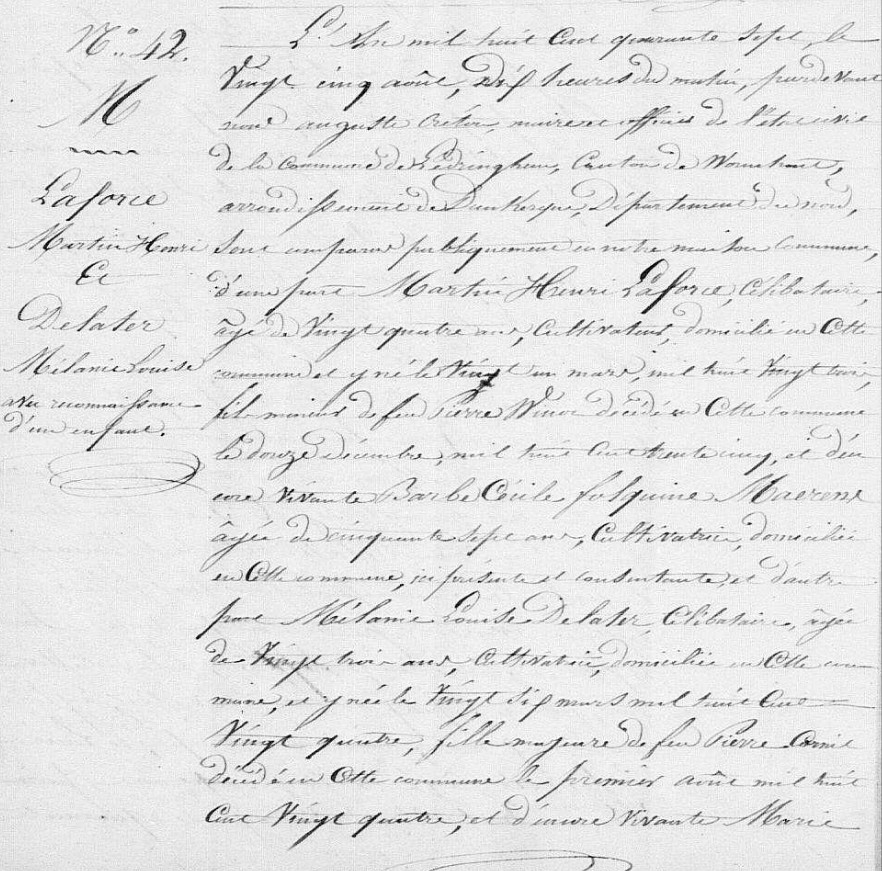 N.° 42.
M
Laforce
Martin Henri
Et
Delater
Mélanie Louise
avec reconnaissance
d'un enfant.
L'An mil huit Cent quarante Sept, le
Vingt cinq août, dix heures du matin, pardevant
nous auguste Créton, maire et officier de l'état civil
de la Commune de Lédringhem, Canton de Wormhout,
arrondissement de Dunkerque, Département du nord,
Sont comparus publiquement en notre maison commune,
d'une part Martin Henri Laforce, Célibataire,
âgé de Vingt quatre ans, Cultivateur, domicilié en Cette
commune et y né le Vingt un mars, mil huit Vingt trois,
fils mineur de feu Pierre Winoc décédé en Cette commune
le douze décembre, mil huit Cent trente cinq, et d'en
core vivante Barbe Cécile folquine Maerene
âgée de cinquante sept ans, Cultivatrice, domiciliée
en Cette commune, ici présente et consentante, et d'autre
part Mélanie Louise Delater, Célibataire, âgée
de Vingt trois ans, Cultivatrice, domiciliée en Cette com
mune, et y née le Vingt Six mars mil huit Cent
Vingt quatre, fille majeure de feu Pierre Cornil
décédé en Cette commune le premier août mil huit
Cent Vingt quatre, et d'encore vivante Marie